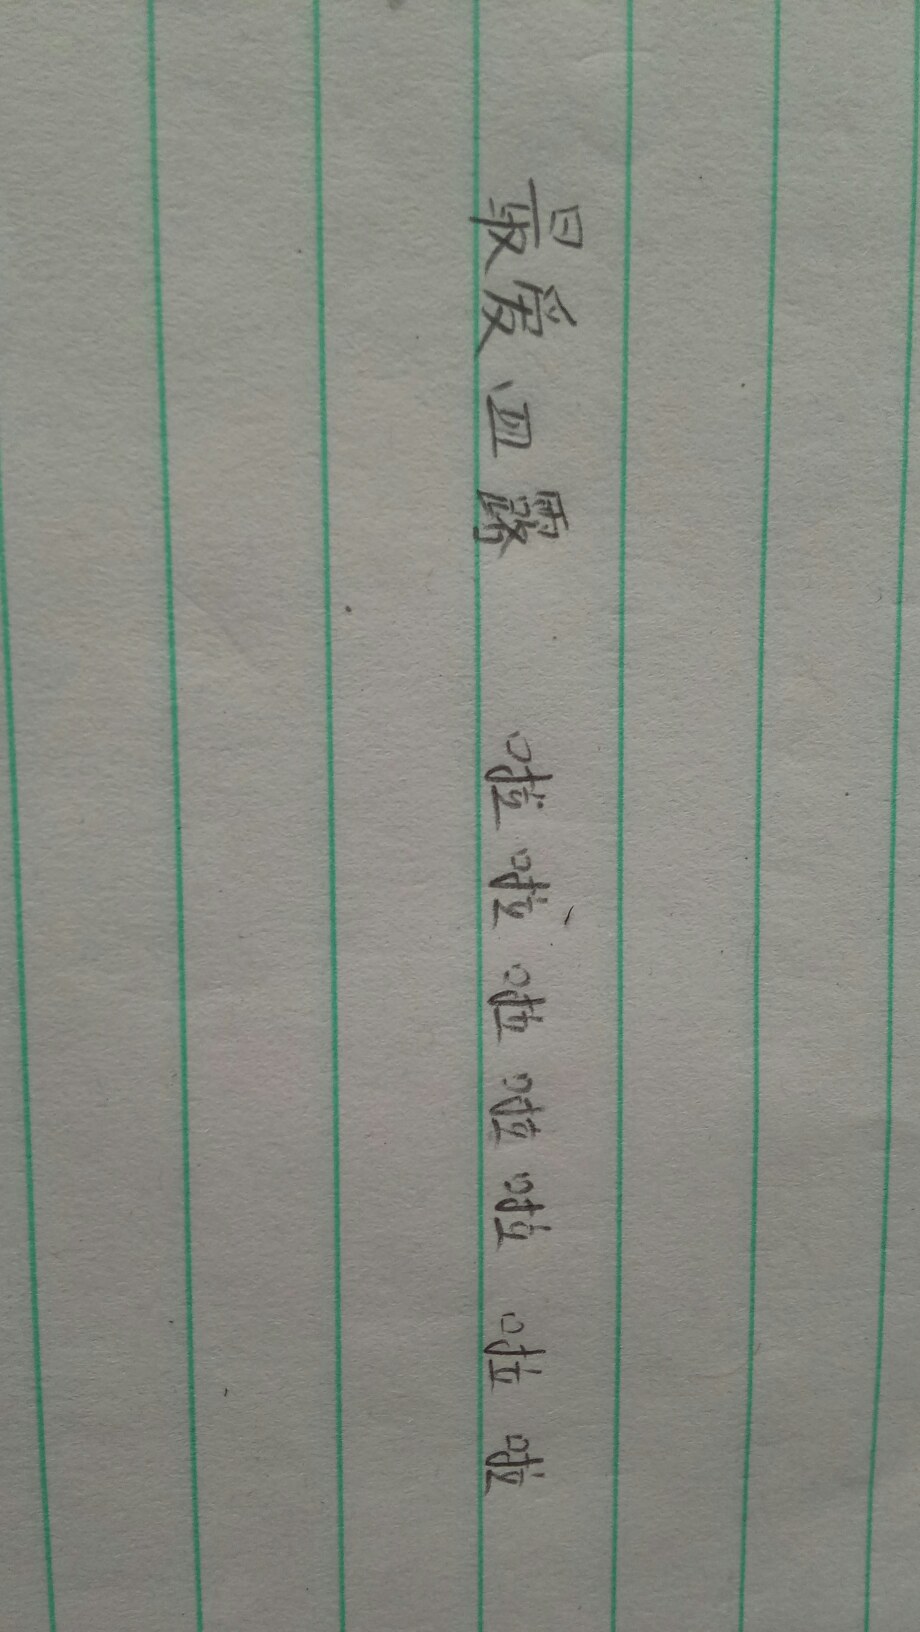 最爱血露 啦啦啦啦啦 啦啦